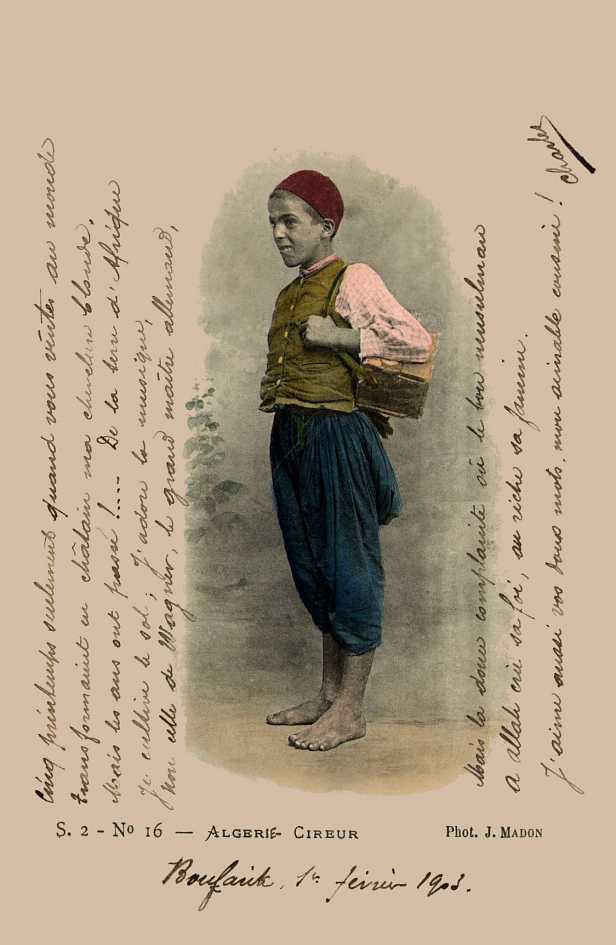 Cinq printemps seulement quand vous vîntes au monde
transformaient en châtain ma chevelure blonde.
Mais les ans ont passé !.... De la terre d'Afrique
Je cultive le sol ; J'adore la musique,
Non celle de Wagner, le grand maître allemand,
Mais la douce complainte où le bon musulman
a allah crie sa foi, au riche sa famine.
J'aime aussi vos doux mots, mon aimable cousine !
Charles
S. 2 - No 16 — ALGERIE- CIREUR
Phot. J. MADON
Boufarik, 1er février 1903.